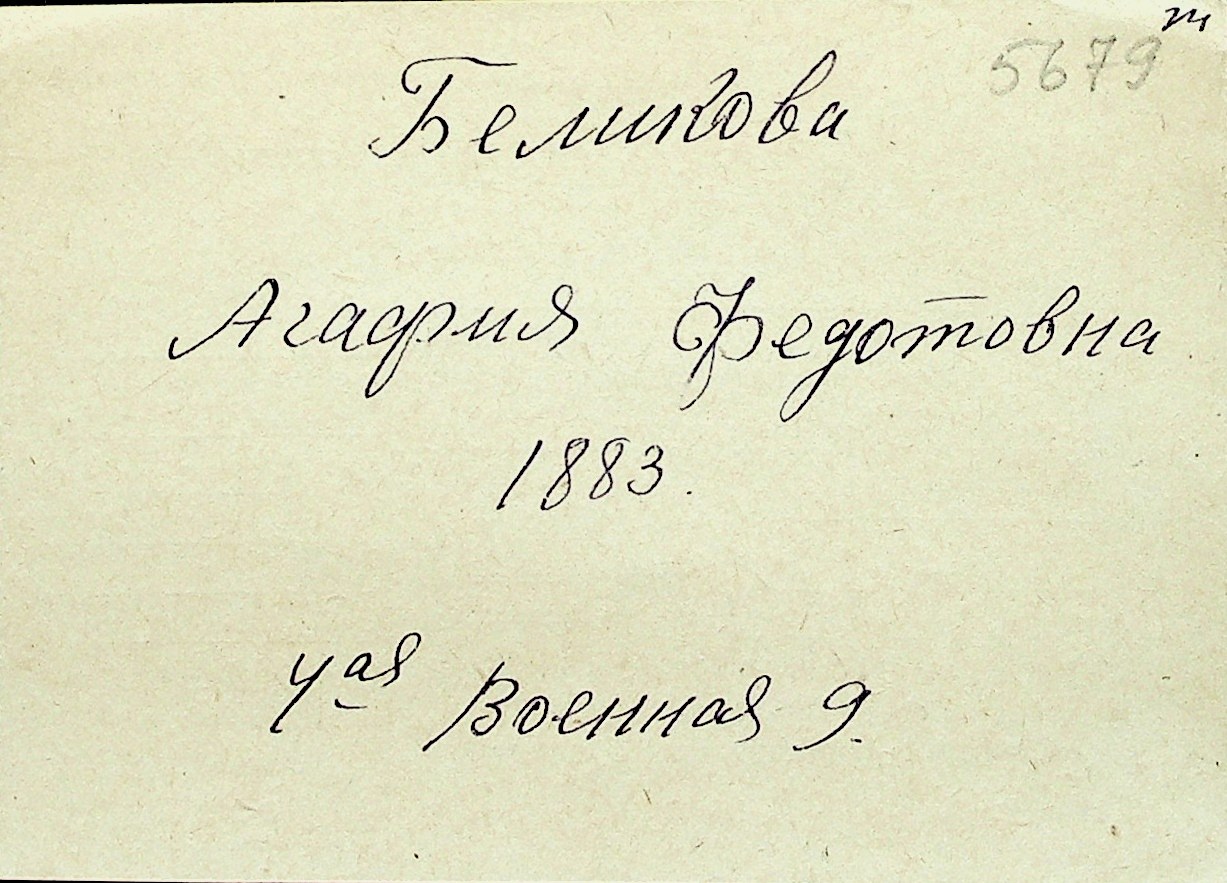 5679
Беликова
Агафия Федотовна
1883.
4ая Военная 9.